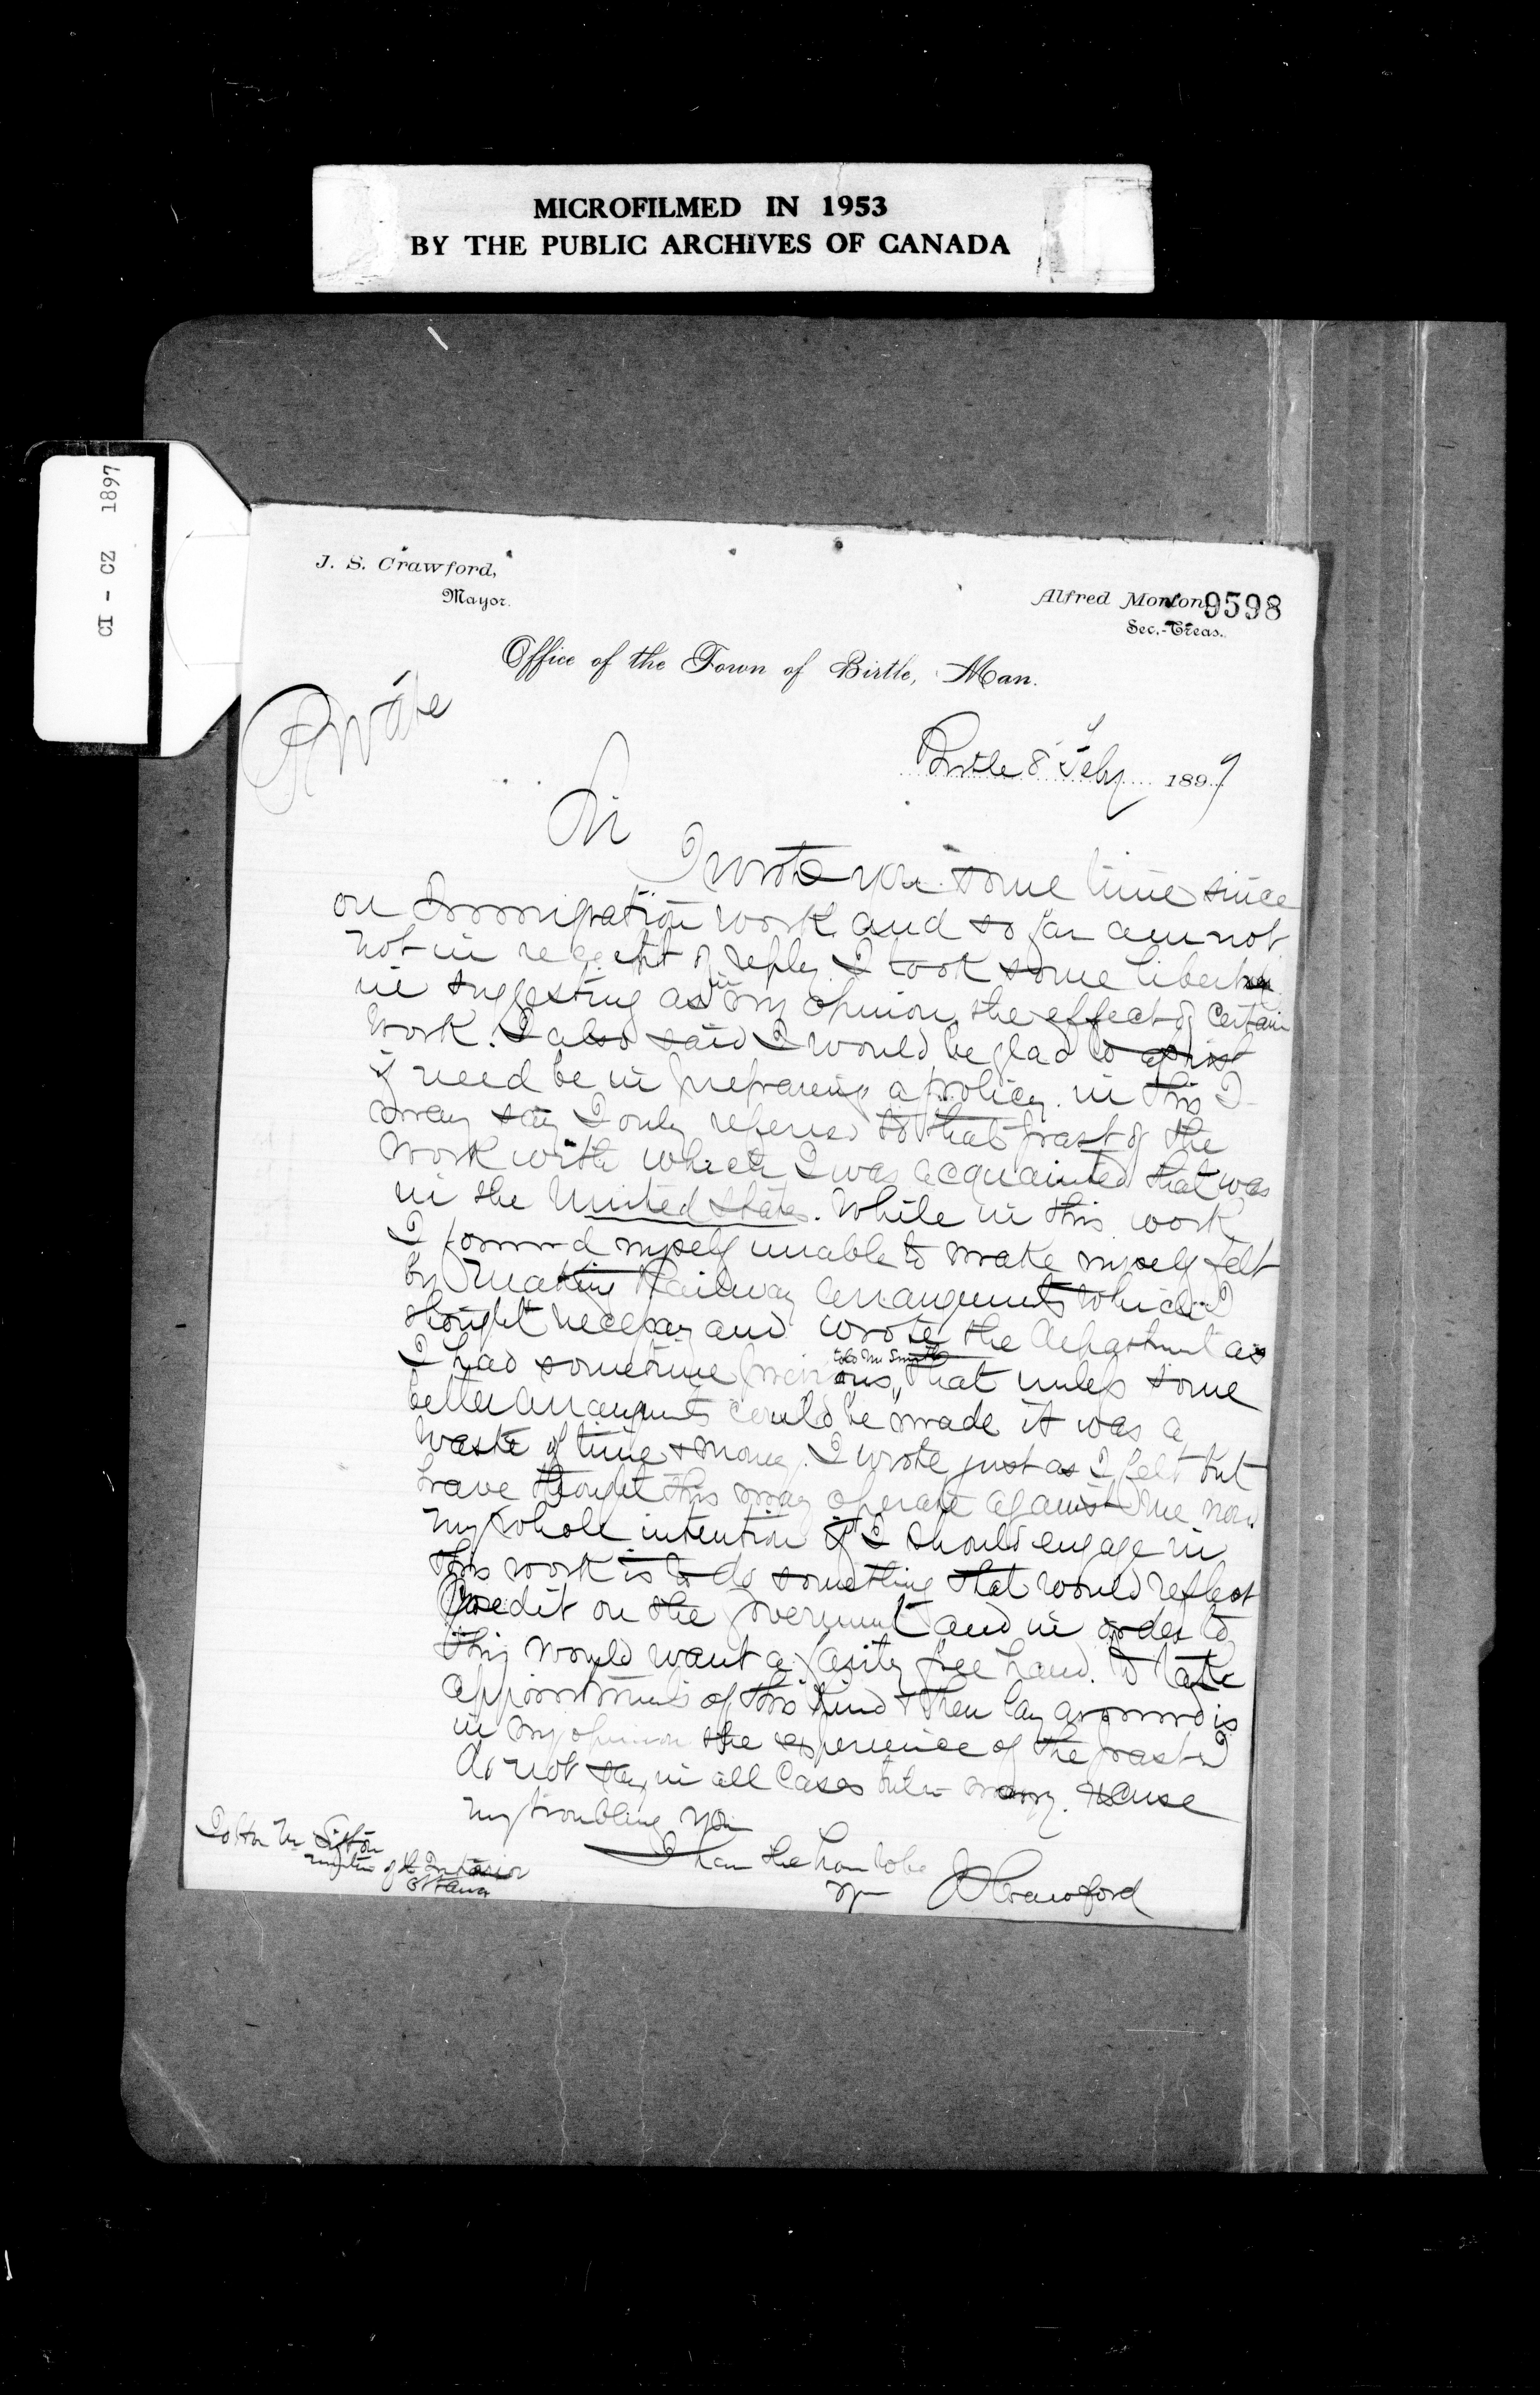 MICROFILMED IN 1953
BY THE PUBLIC ARCHIVES OF CANADA
CI - CZ 1897
J. S. Crawford,
Mayor.
Alfred Morton 9598
Sec.-Treas.
Office of the Town of Birtle, Man.
Private
Birtle 8 Feby 1897
Sir
I wrote you some time since
on Immigration work and so far am not
not in receipt of reply. I took some liberty
in suggesting as in my opinion the effect of certain
work. I also said I would be glad to assist
if need be in preparing a policy. in this I
may say I only referred to that part of the
work with which I was acquainted that was
in the United States. While in this work
I found myself unable to make myself felt
by making Railway arrangements which I
thought necessary and wrote the Department as
I had sometime previous, told Mr Smith that unless some
better arrangements could be made it was a
waste of time & money. I wrote just as I felt but
have thought this may operate against me now
my whole intention if I should engage in
this work is to do something that would reflect
credit on the Government and in order to
this would want a fairly free hand. to take
appointments of this kind & then lay around is
in my opinion the experience of the past I
do not say in all cases but in many. Excuse
my troubling you
I have the hon to be
J S Crawford
To Hon Mr Sifton
Minister of the Interior
Ottawa